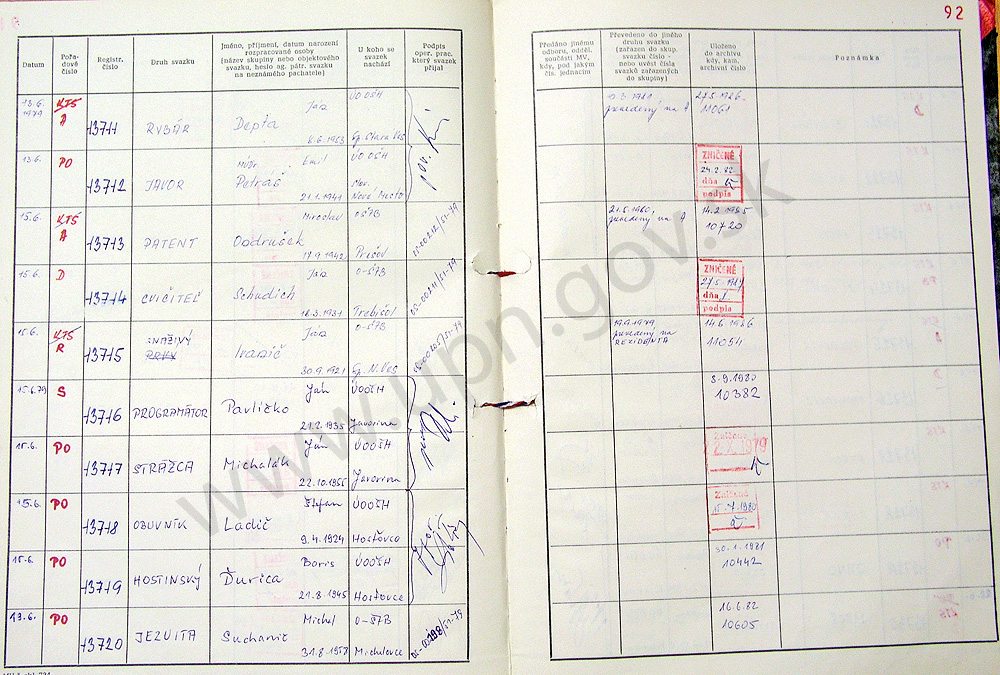 92
Datum
Pořadové číslo
Registr. číslo
Druh svazku
Jméno, příjmení, datum narození
rozpracované osoby
(název skupiny nebo objektového
svazku, heslo ag. pátr. svazku
na neznámého pachatele)
U koho se
svazek
nachází
Podpis
oper. prac.
který svazek
přijal
Předáno jinému
odboru, odděl.
součásti MV,
kdy, pod jakým
čís. jednacím
Převedeno do jiného
druhu svazku
(zařazen do skup.
svazku číslo -
nebo uvést čísla
svazků zařazených
do skupiny)
Uloženo
do archivu
kdy, kam,
archivní číslo
Poznámka
13.6. 1979 KTS A 13711 RYBÁR Depta 6.6.1953 ÚOOŠH Sp. Stara Ves 11061
13.6. PO 13712 JAVOR Emil Petráš 21.1.1941 ÚOOŠH Nové Mesto ZNIČENÉ 24.2.82 dňa podpis
15.6. KTS A 13713 PATENT Miroslav Oodrušek 17.9.1942 O-ŠTB Prešov 21.5.1980, prevedený na A 14.2.1985 10720
15.6. D 13714 CVIČITEĽ Ján Schudich 18.3.1931 O-ŠTB Trebišov ZNIČENÉ dňa podpis
15.6. KTS R 13715 SNAŽIVÝ Ján Ivanič 30.9.1921 O-ŠTB Sp. N. Ves 19.9.1979 prevedený na REZIDENTA 14.6.1986 11054
15.6.79 S 13716 PROGRAMÁTOR Ján Pavličko 21.2.1935 ÚOOŠH Javorina 3.9.1980 10382
15.6. PO 13717 STRÁŽCA Ján Michalák 22.10.1955 ÚOOŠH Javorina Zničené
15.6. PO 13718 OBUVNÍK Štefan Ladič 9.4.1924 ÚOOŠH Hosťovce Zničené 15.7.1980
15.6. PO 13719 HOSTINSKÝ Boris Ďurica 21.8.1945 ÚOOŠH Hosťovce 30.1.1981 10442
19.6. PO 13720 JEZUITA Michal Suchanič O-ŠTB Michalovce 16.6.82 10605
www.upn.gov.sk